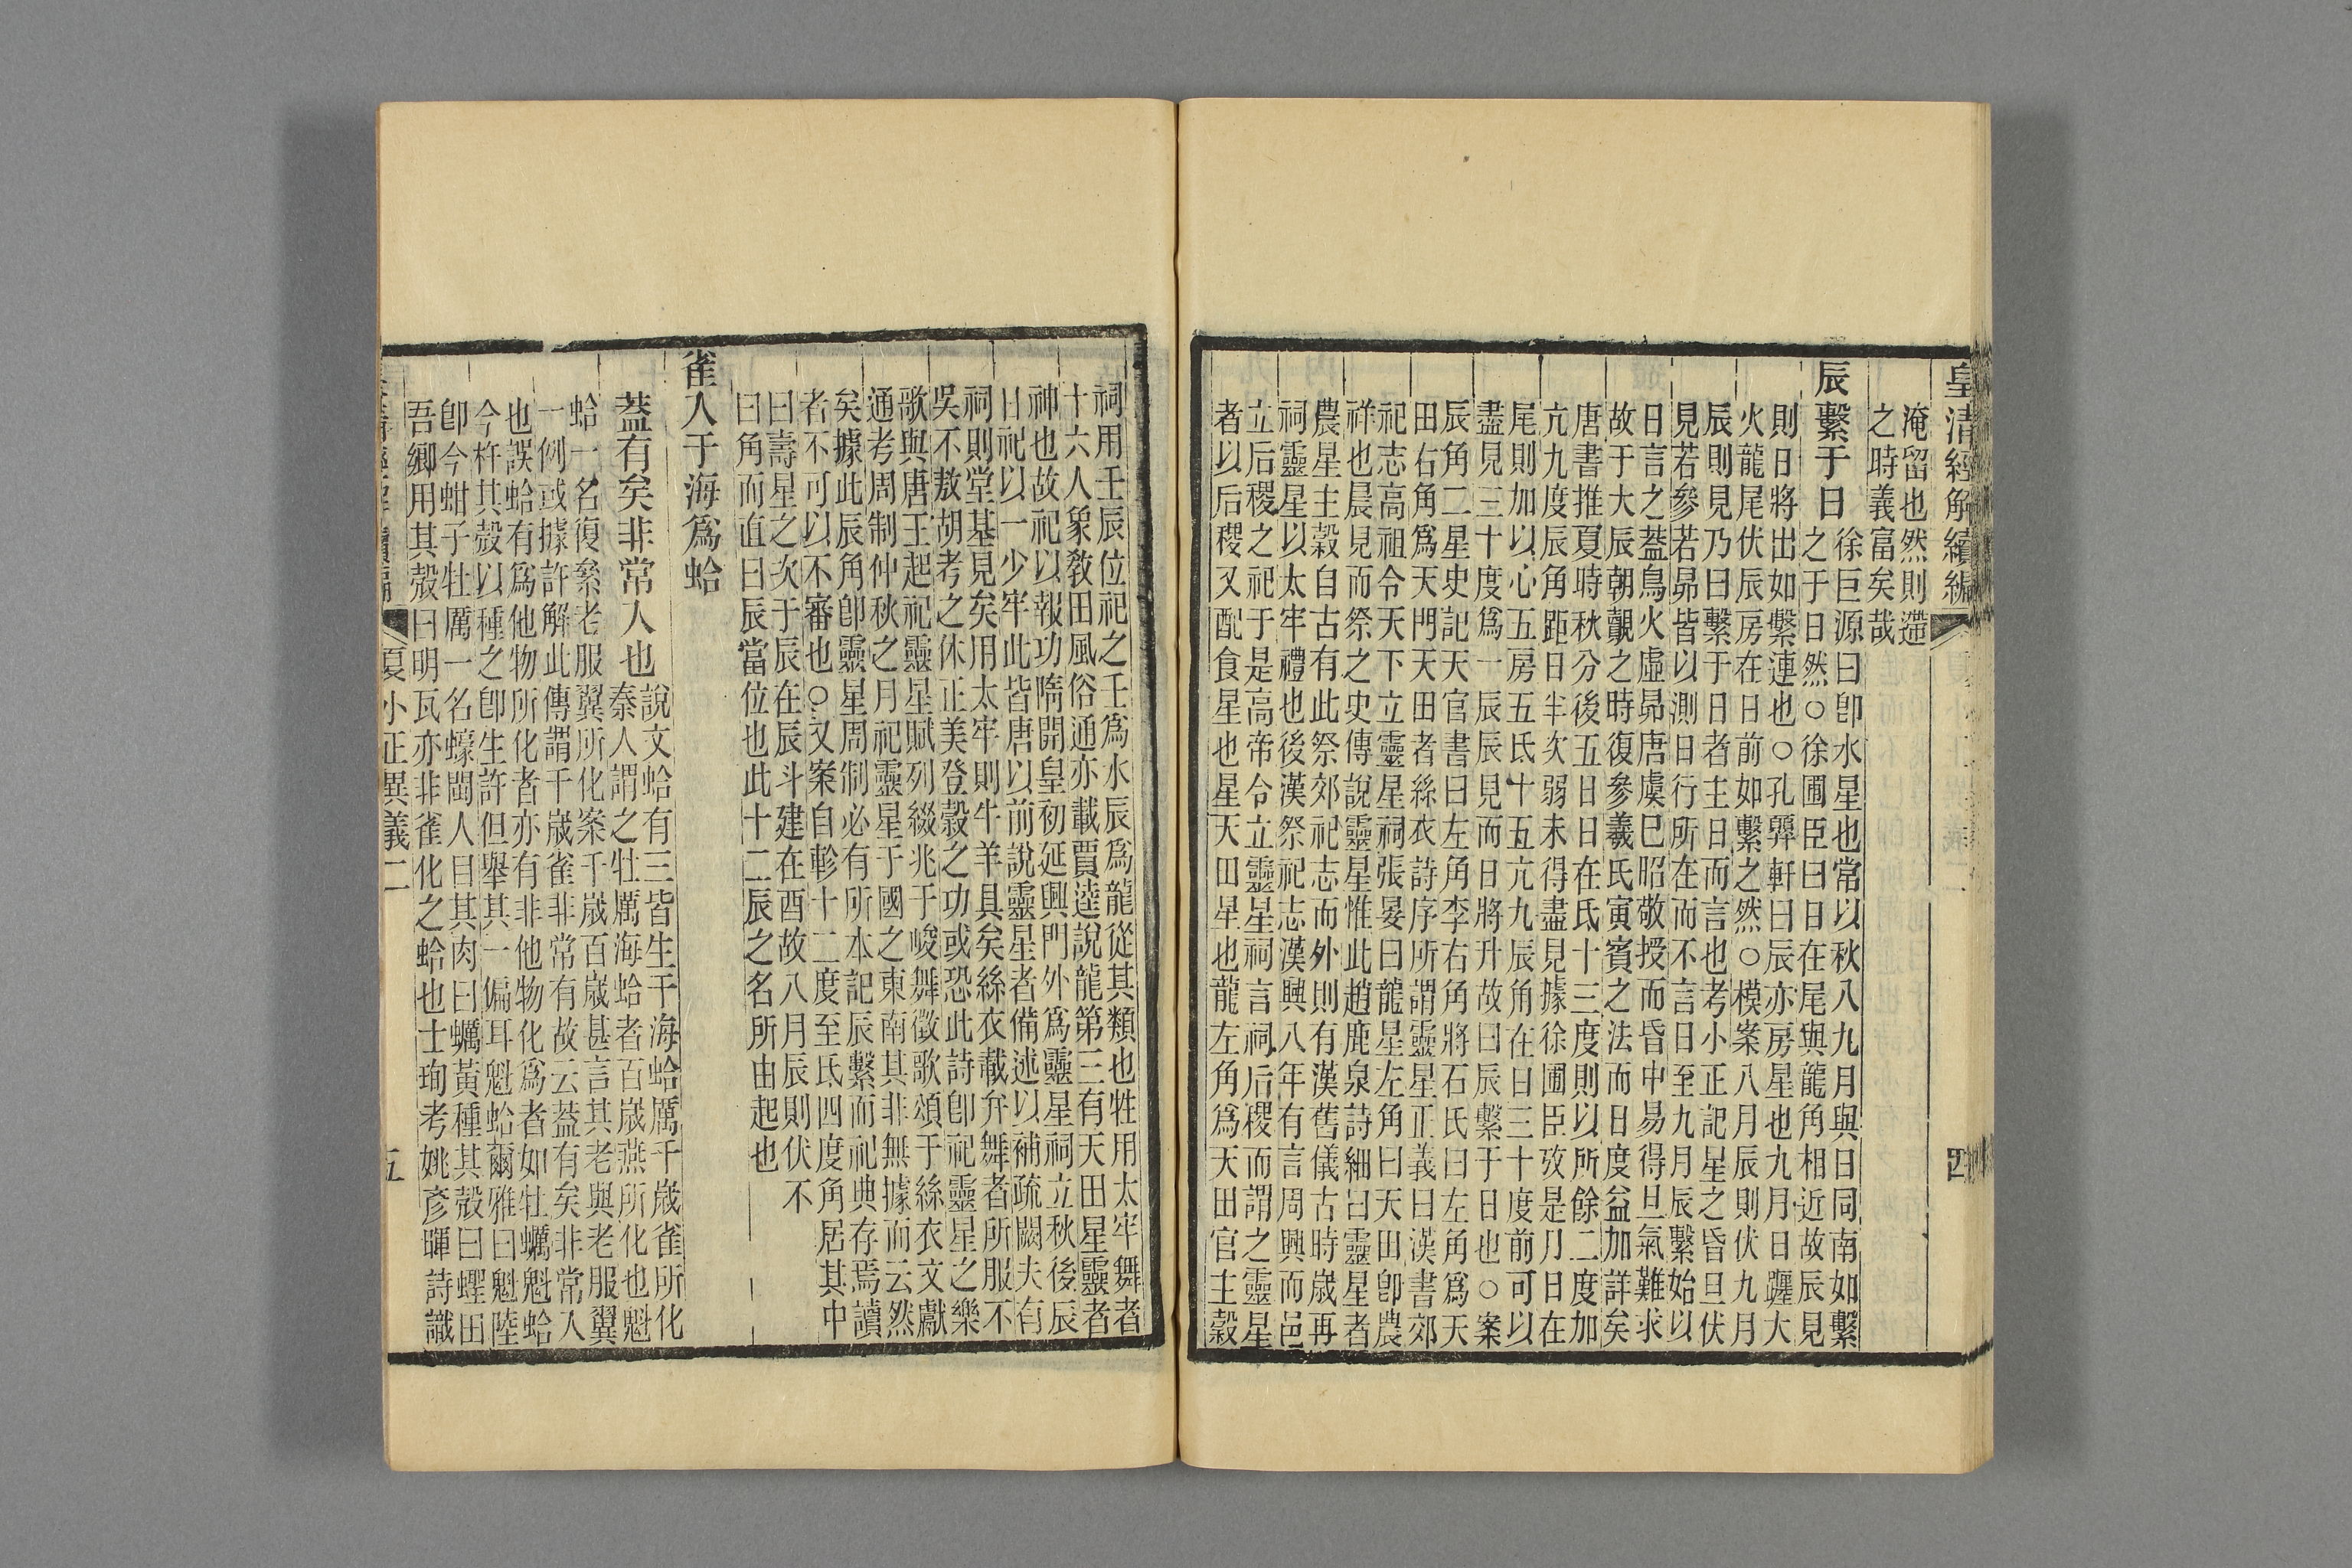 皇清經解續編
四
淹留也然則遰
之時義富矣哉
辰繫于日
徐巨源曰卽水星也常以秋八九月與日同南如繫
之于日然○徐圃臣曰日在尾與龍角相近故辰見
則日將出如繫連也○孔㢲軒曰辰亦房星也九月日躔大
火龍尾伏辰房在日前如繫之然○模案八月辰則伏九月
辰則見乃曰繫于日者主日而言也考小正記星之昏旦伏
見若參若昴皆以測日行所在而不言日至九月辰繫始以
日言之蓋鳥火虛昴唐虞巳昭敬授而昏中易得旦氣難求
故于大辰朝覿之時復參羲氏寅賓之法而日度益加詳矣
唐書推夏時秋分後五日日在氐十三度則以所餘二度加
亢九度辰角距日半次弱未得盡見據徐圃臣攷是月日在
尾則加以心五房五氐十五亢九辰角在日三十度前可以
盡見三十度爲一辰辰見而日將升故曰辰繫于日也○案
辰角二星史記天官書曰左角李右角將石氏曰左角爲天
田右角爲天門天田者絲衣詩序所謂靈星正義曰漢書郊
祀志高祖令天下立靈星祠張晏曰龍星左角曰天田卽農
祥也晨見而祭之史傳說靈星惟此趙鹿泉詩細曰靈星者
農星主穀自古有此祭郊祀志而外則有漢舊儀古時歲再
祠靈星以太牢禮也後漢祭祀志漢興八年有言周興而邑
立后稷之祀于是高帝令立靈星祠言祠后稷而謂之靈星
者以后稷又配食星也星天田星也龍左角爲天田官主穀
祠用壬辰位祀之壬爲水辰爲龍從其類也牲用太牢舞者
十六人象敎田風俗通亦載賈逵說龍第三有天田星靈者
神也故祀以報功隋開皇初延興門外爲靈星祠立秋後辰
日祀以一少牢此皆唐以前說靈星者備述以補疏闕夫有
祠則堂基見矣用太牢則牛羊具矣絲衣載弁舞者所服不
吳不敖胡考之休正美登穀之功或恐此詩卽祀靈星之樂
歌與唐王起祀靈星賦列綴兆于峻舞徵歌頌于絲衣文獻
通考周制仲秋之月祀靈星于國之東南其非無據而云然
矣據此辰角卽靈星周制必有所本記辰繫而祀典存焉讀
者不可以不審也○又案自軫十二度至氐四度角居其中
曰壽星之次于辰在辰斗建在酉故八月辰則伏不
曰角而直曰辰當位也此十二辰之名所由起也
雀入于海爲蛤
蓋有矣非常入也
說文蛤有三皆生于海蛤厲千歲雀所化
秦人謂之牡厲海蛤者百歲燕所化也魁
蛤一名復絫老服翼所化案千歲百歲甚言其老與老服翼
一例或據許解此傳謂千歲雀非常有故云蓋有矣非常入
也誤蛤有爲他物所化者亦有非他物化爲者如牡蠣魁蛤
今杵其殼以種之卽生許但舉其一偏耳魁蛤爾雅曰魁陸
卽今蚶子牡厲一名蠔閩人目其肉曰蠣黃種其殼曰蟶田
吾鄉用其殼曰明瓦亦非雀化之蛤也士珣考姚彥暉詩識
夏小正異義二
五